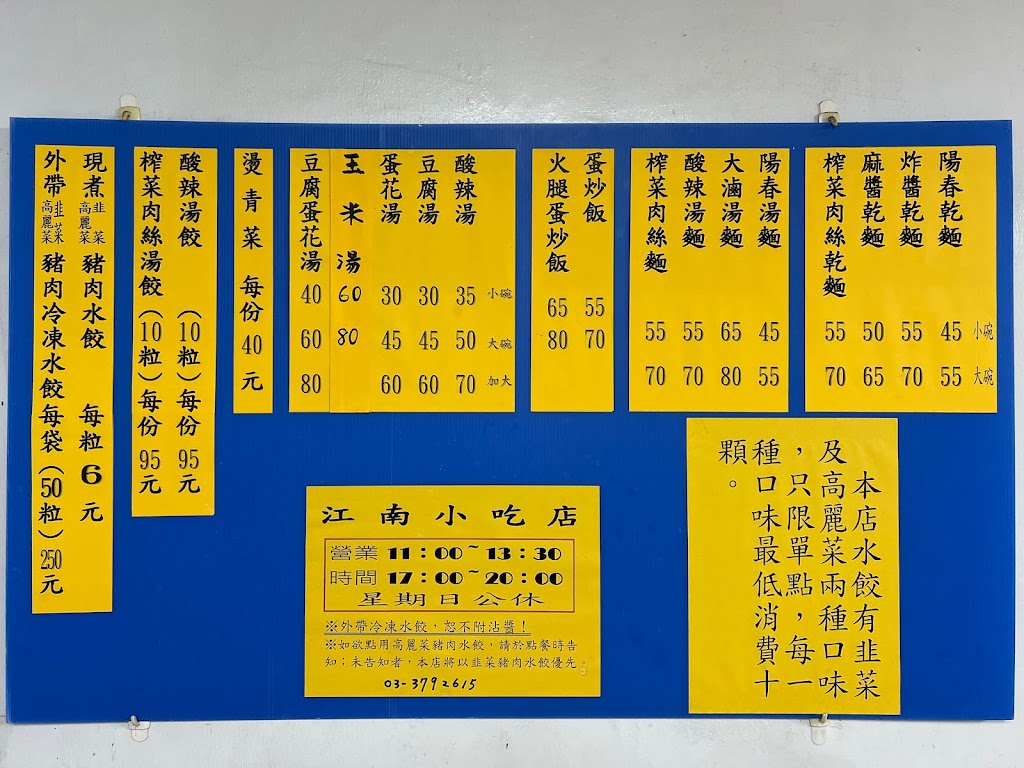 陽春乾麵 45 55
炸醬乾麵 55 70
麻醬乾麵 50 65
榨菜肉絲乾麵 55 70
小碗
大碗
陽春湯麵 45 55
大滷湯麵 65 80
酸辣湯麵 55 70
榨菜肉絲麵 55 70
蛋炒飯 55 70
火腿蛋炒飯 65 80
小碗
大碗
加大
酸辣湯 35 50 70
豆腐湯 30 45 60
蛋花湯 30 45 60
玉米湯 60 80
豆腐蛋花湯 40 60 80
燙青菜 每份 40 元
酸辣湯餃(10粒)每份 95 元
榨菜肉絲湯餃(10粒)每份 95 元
現煮韭菜高麗菜豬肉水餃 每粒 6 元
外帶韭菜高麗菜豬肉冷凍水餃每袋(50粒)250元
本店水餃有韭菜
及高麗菜兩種口味
,只限單點,每一
種口味最低消費十
顆。
江南小吃店
營業 11:00~13:30
時間 17:00~20:00
星期日公休
※外帶冷凍水餃,恕不附沾醬!
※如欲點用高麗菜豬肉水餃,請於點餐時告
知;未告知者,本店將以韭菜豬肉水餃優先。
03-3792615